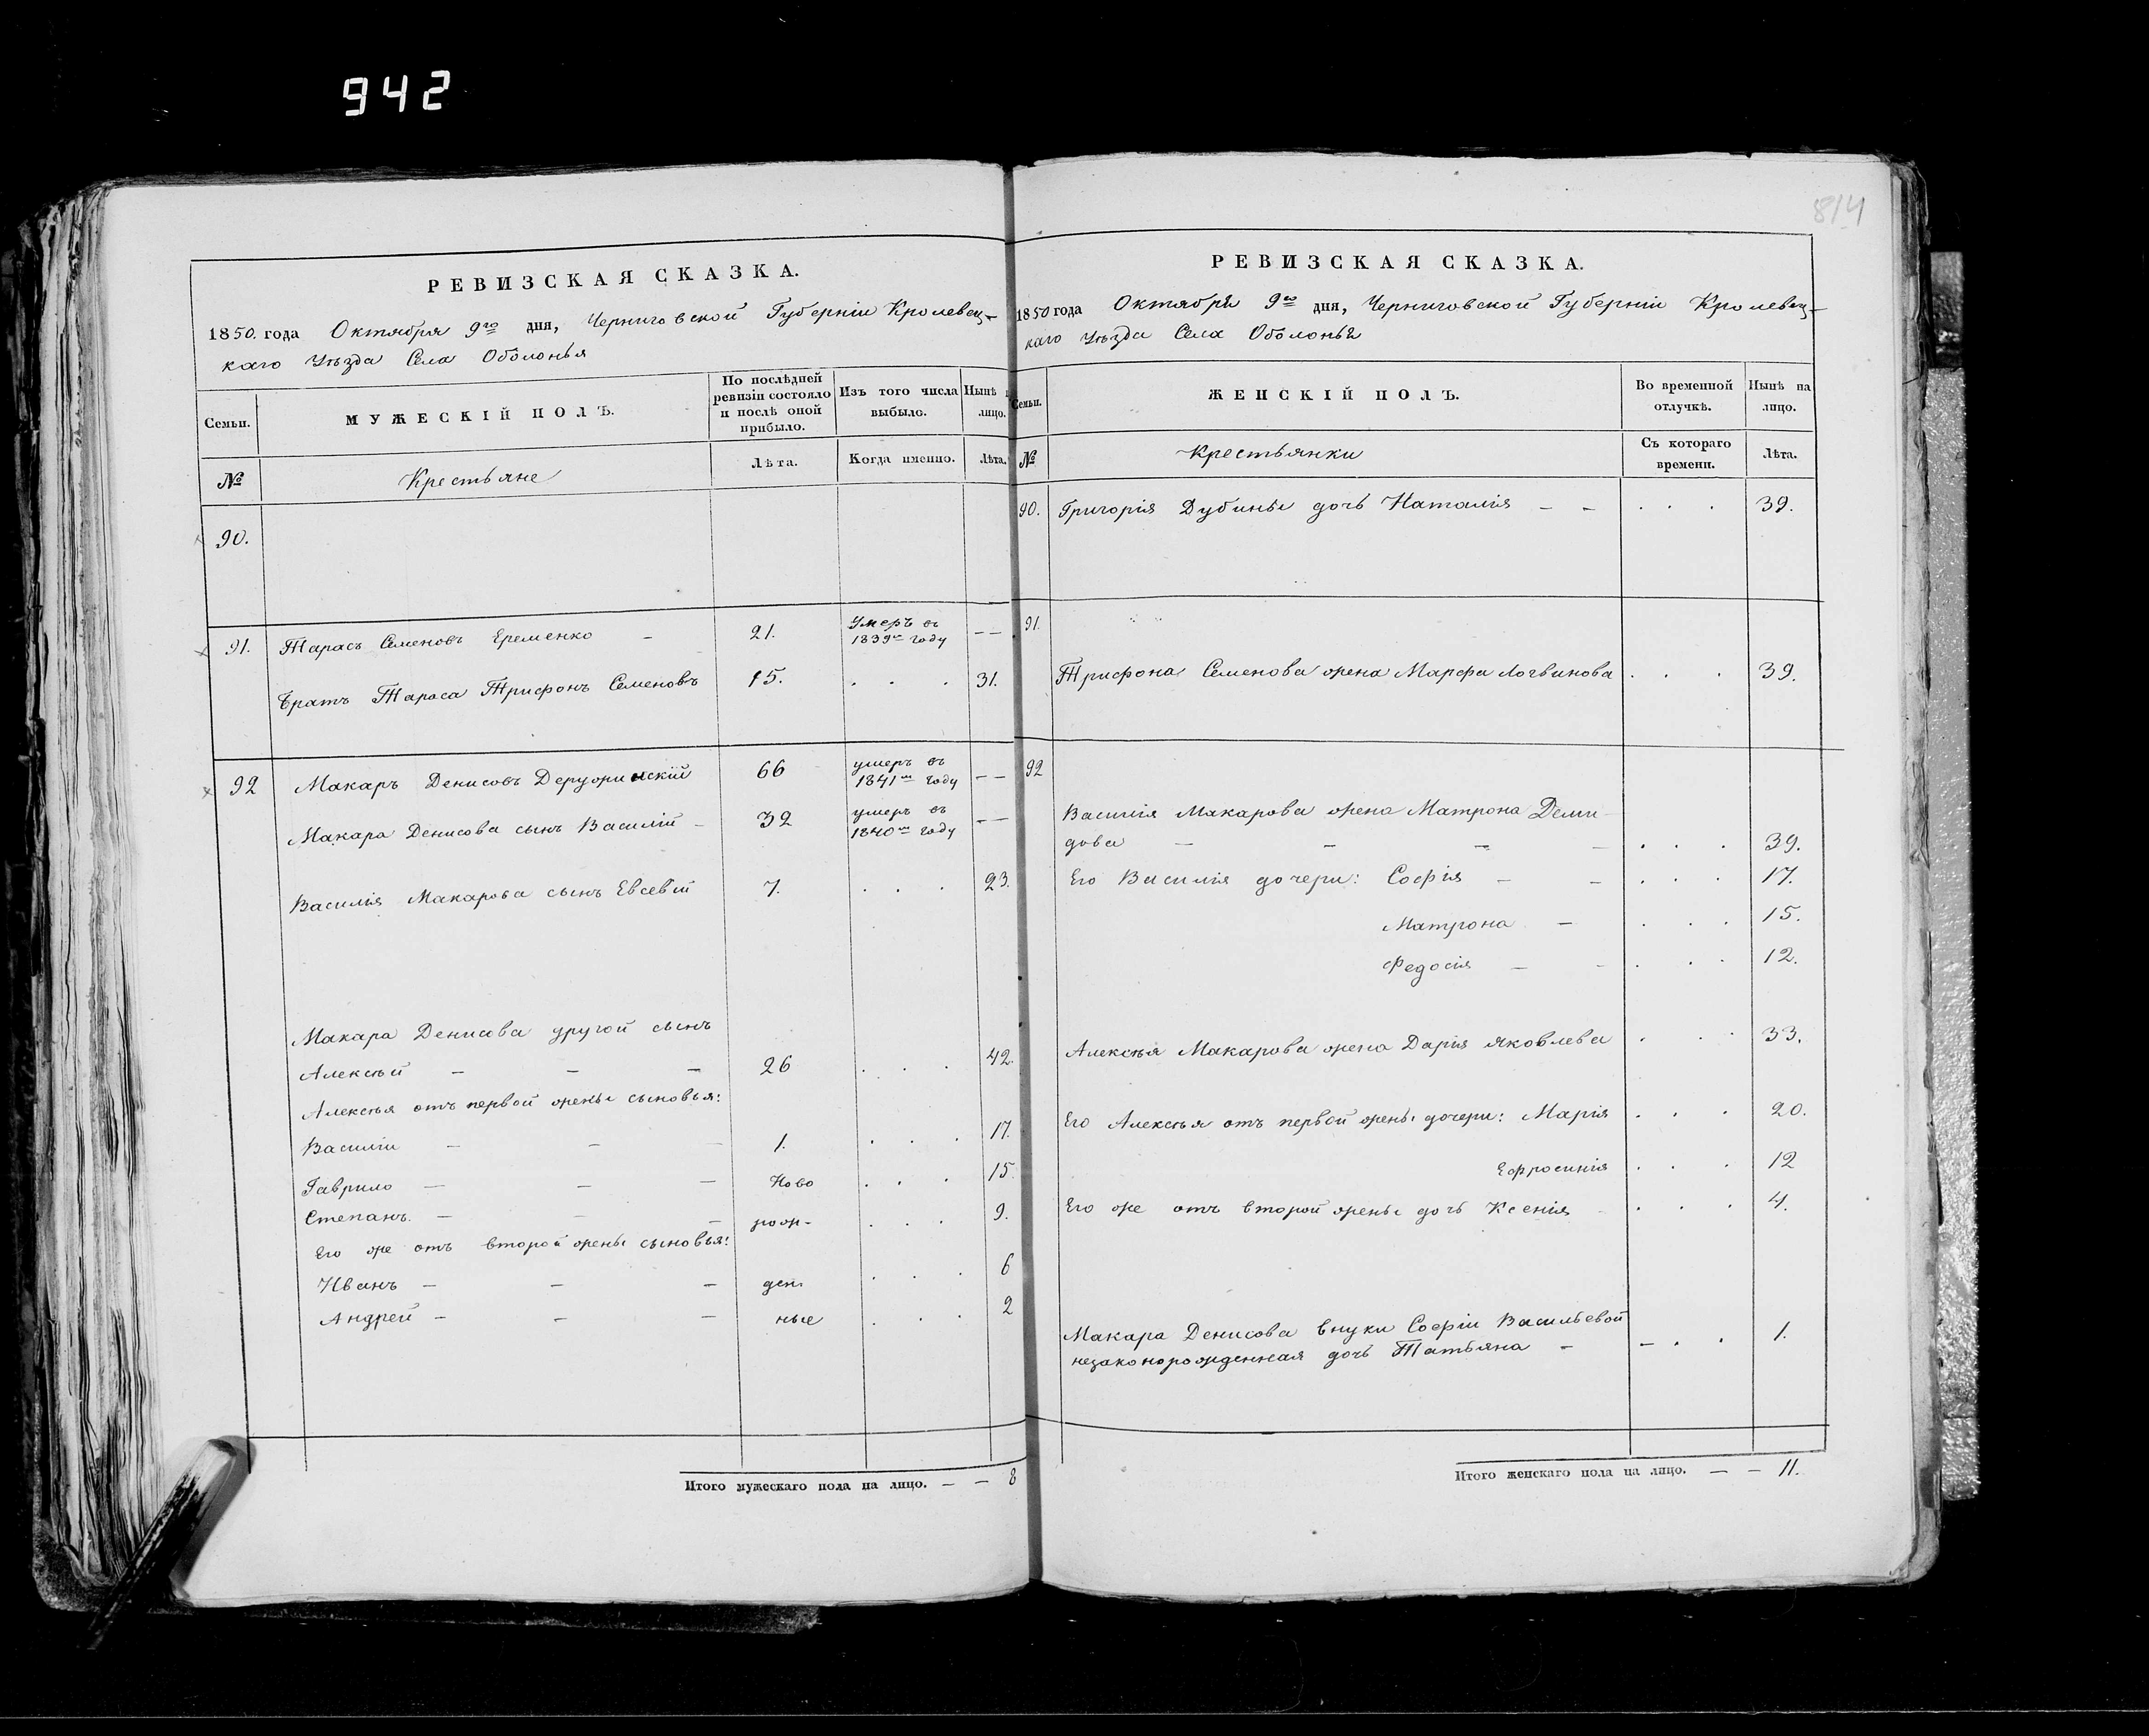 942
814
РЕВИЗСКАЯ СКАЗКА.
1850. года Октября 9го дня, Черниговской Губерніи Кролевец-
каго Уѣзда Села Оболонья
Семьи.
МУЖЕСКІЙ ПОЛЪ.
По послѣдней ревизіи состояло и послѣ оной прибыло.
Изъ того числа выбыло.
Нынѣ лицо.
№
Крестьяне
Лѣта.
Когда именно.
Лѣта.
90.
91. Тарасъ Семеновъ Еременко – 21. Умеръ въ 1839м году – –
Братъ Тараса Трифонъ Семеновъ 15. . . . 31.
92 Макаръ Денисовъ 66 умеръ въ 1841м году – –
Макара Денисова сынъ Василій – 32 умеръ въ 1840м году – –
Василія Макарова сынъ Евсевій 7. . . . 23.
Макара Денисова другой сынъ
Алексѣй – – – 26 . . . 42.
Алексѣя отъ первой жены сыновья:
Василій – – – 1. . . . 17.
Гаврило – – – Ново . . . 15.
Степанъ. – – – рож- . . . 9.
Его же отъ второй жены сыновья:
Иванъ – – – ден . . . 6
Андрей – – – ные . . . 2
Итого мужескаго пола на лицо. – – 8
РЕВИЗСКАЯ СКАЗКА.
1850 года Октября 9го дня, Черниговской Губерніи Кролевец-
каго Уѣзда Села Оболонья
Семьи.
ЖЕНСКІЙ ПОЛЪ.
Во временной отлучкѣ.
Нынѣ на лицо.
№
Крестьянки
Съ котораго времени.
Лѣта.
90. Григорія Дубины дочь Наталія – – . . . 39.
91.
Трифона Семенова жена Марфа Логвинова . . . 39.
92
Василія Макарова жена Матрона Деми-
дова – – – – . . . 39.
Его Василія дочери: Софія – – . . . 17.
Матрона – . . . 15.
Федосія – – . . . 12.
Алексѣя Макарова жена Дарія Яковлева . . . 33.
Его Алексѣя отъ первой жены дочери: Марія . . . 20.
Ефросинія . . . 12
Его же отъ второй жены дочь Ксенія – . . . 4.
Макара Денисова внуки Софіи Васильевой
незаконорожденная дочь Татьяна – – . . 1.
Итого женскаго пола на лицо. – – 11.